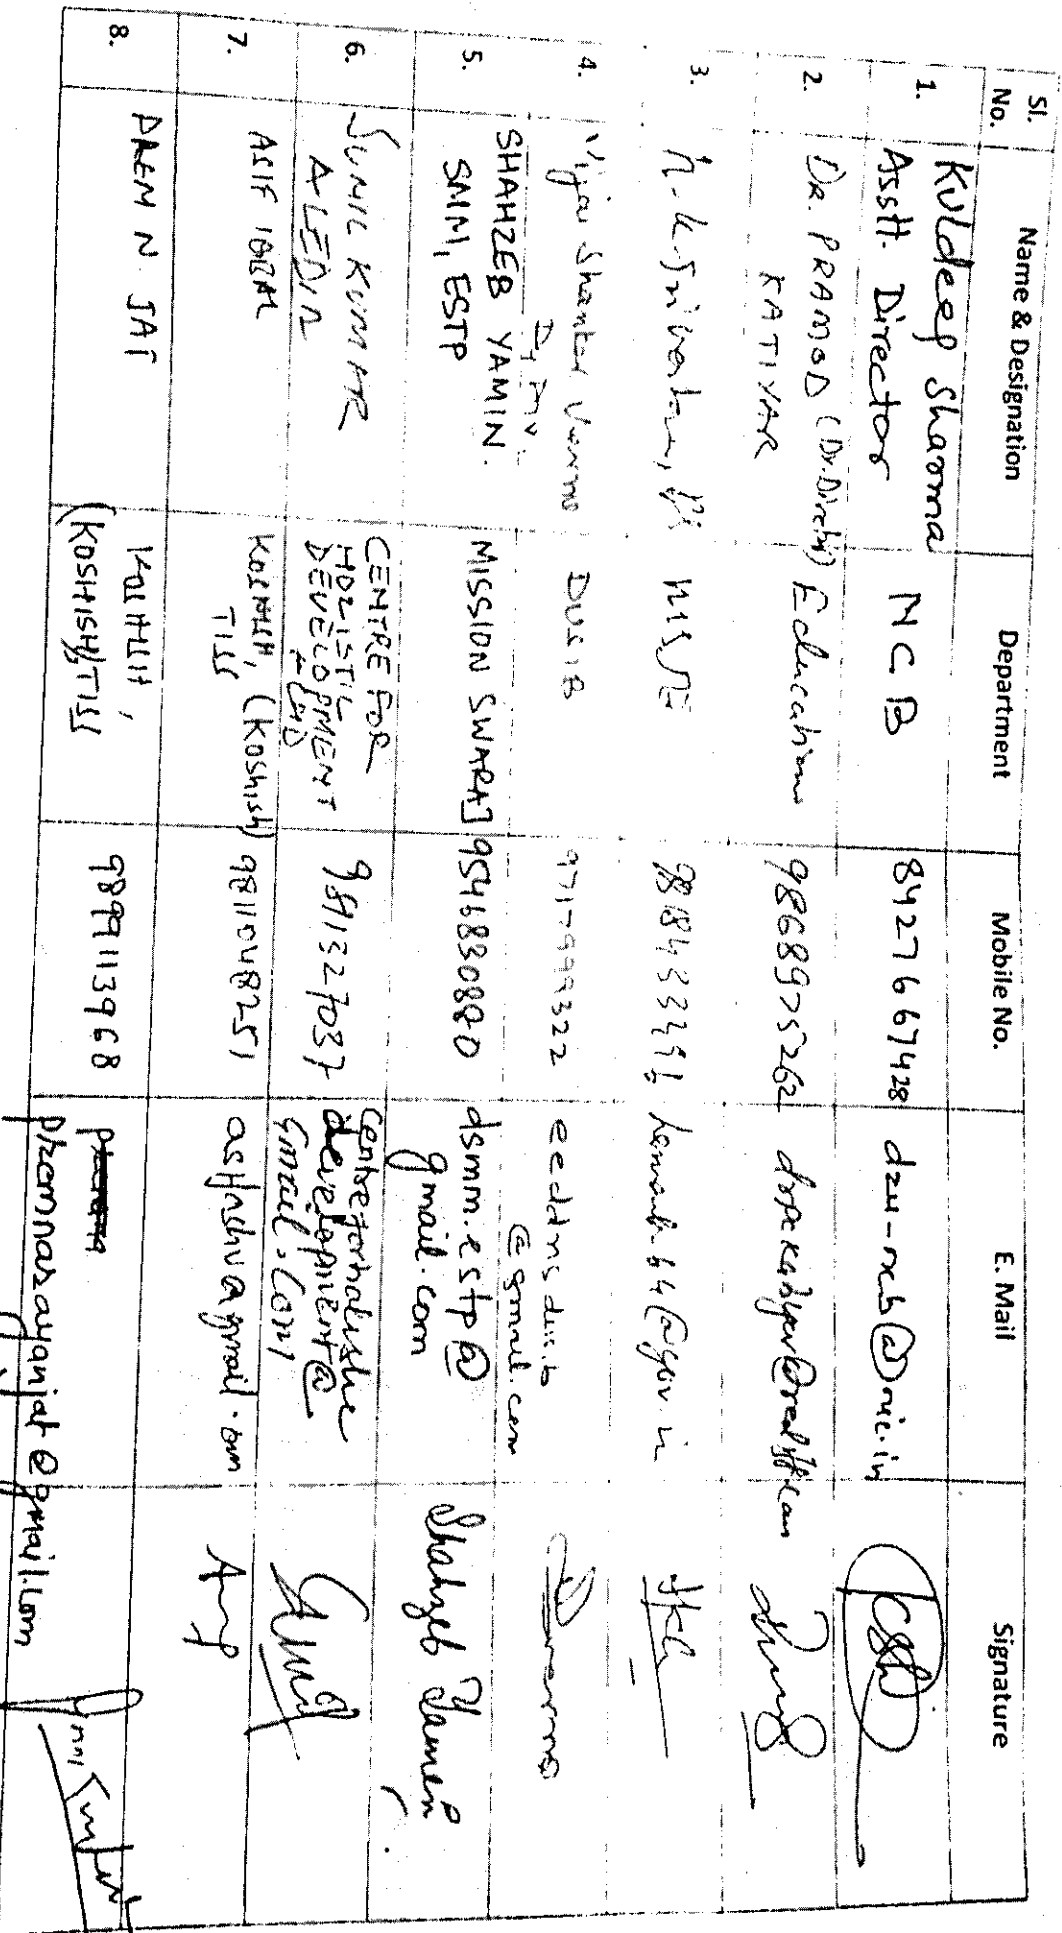 Sl. No. Name & Designation Department Mobile No. E. Mail Signature
1. Kuldeep Sharma
Asstt. Director NCB 8427667428 dzu-ncb@nic.in
2. DR. PRAMOD (Dy. Director)
KATIYAR Education 9868975262
3. NISD
4. Vijai Shanker Verma
DUSIB 9717999322 eeddns dusib
@gmail.com
5. SHAHZEB YAMIN.
SMM, ESTP MISSION SWARAJ 9546830880 dsmm.estp@
gmail.com Shahzeb Yamin
6. SUNIL KUMAR
ALEDIA CENTRE FOR
HOLISTIC
DEVELOPMENT
- CHD 9811327037 centreforholistic
development@
gmail.com
7. ASIF IQBAL KOSHISH, (Koshish)
TISS 9811048251
8. PREM N. JAT KOSHISH,
(KOSHISH)/TISS 9899113968
premnarayanjat@gmail.com